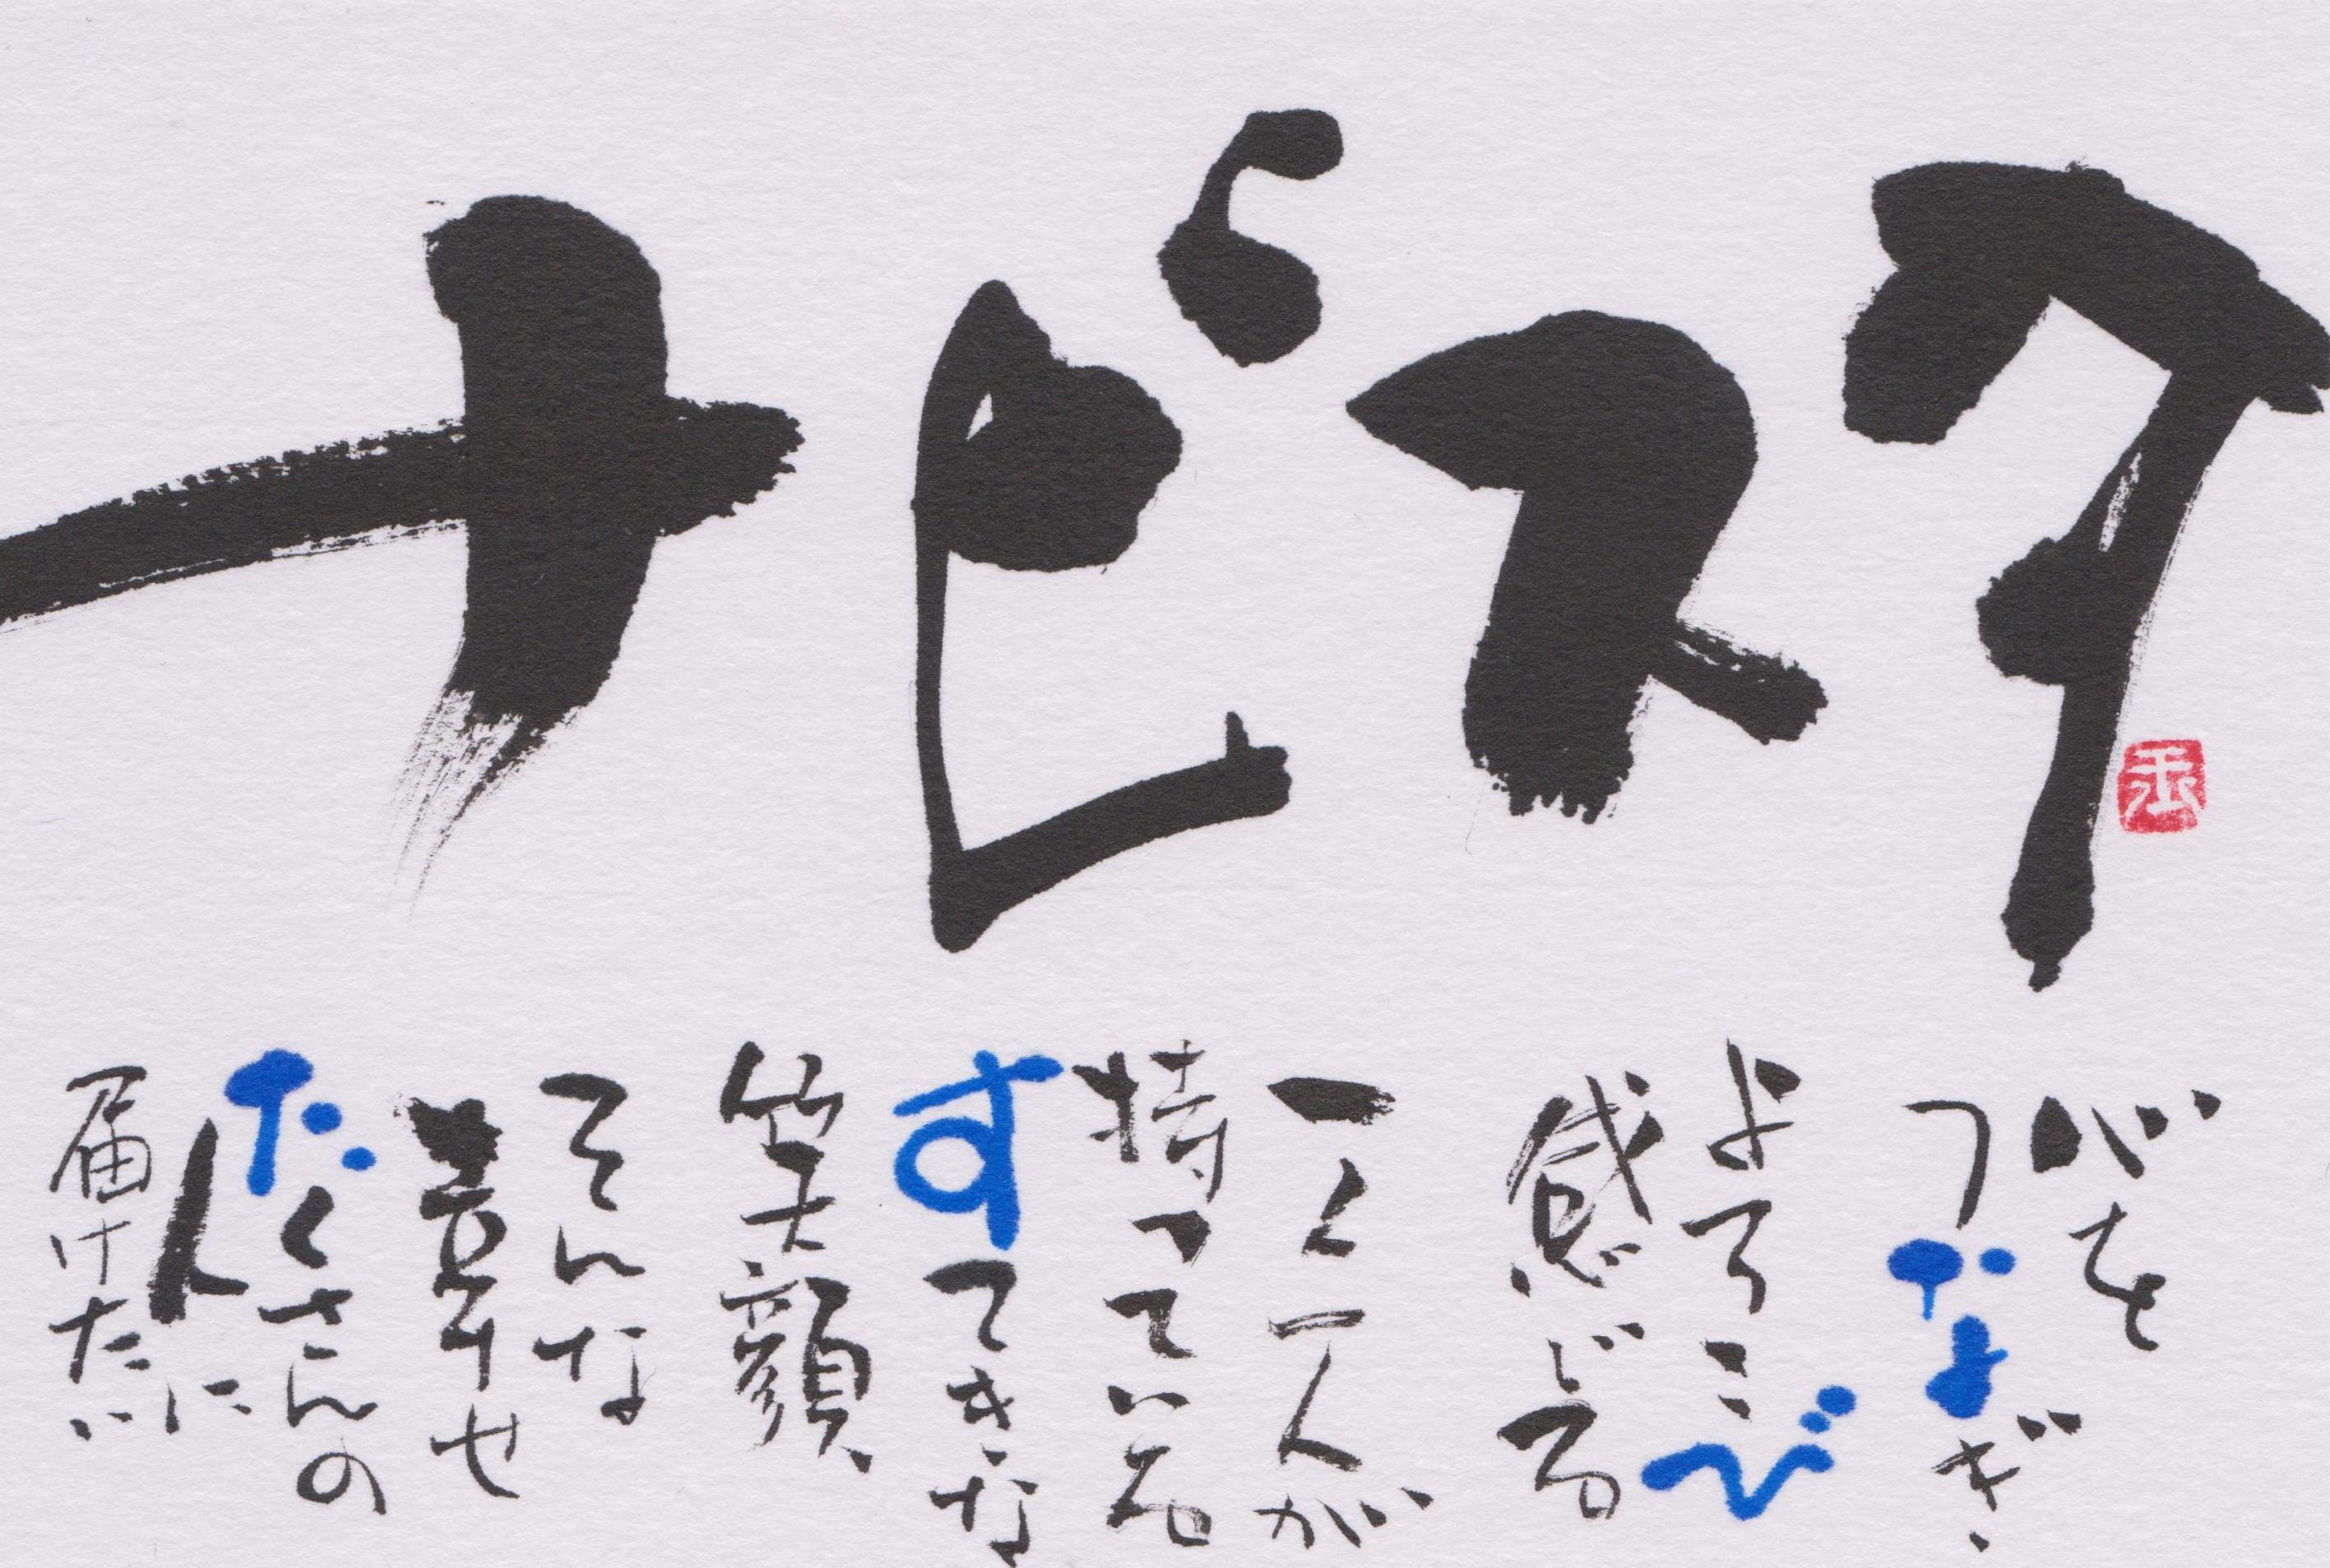 ナビスタ
心を
つなぎ、
よろこび
感じる
一人一人が
持っている
すてきな
笑顔、
そんな
幸せ
たくさんの
人に
届けたい